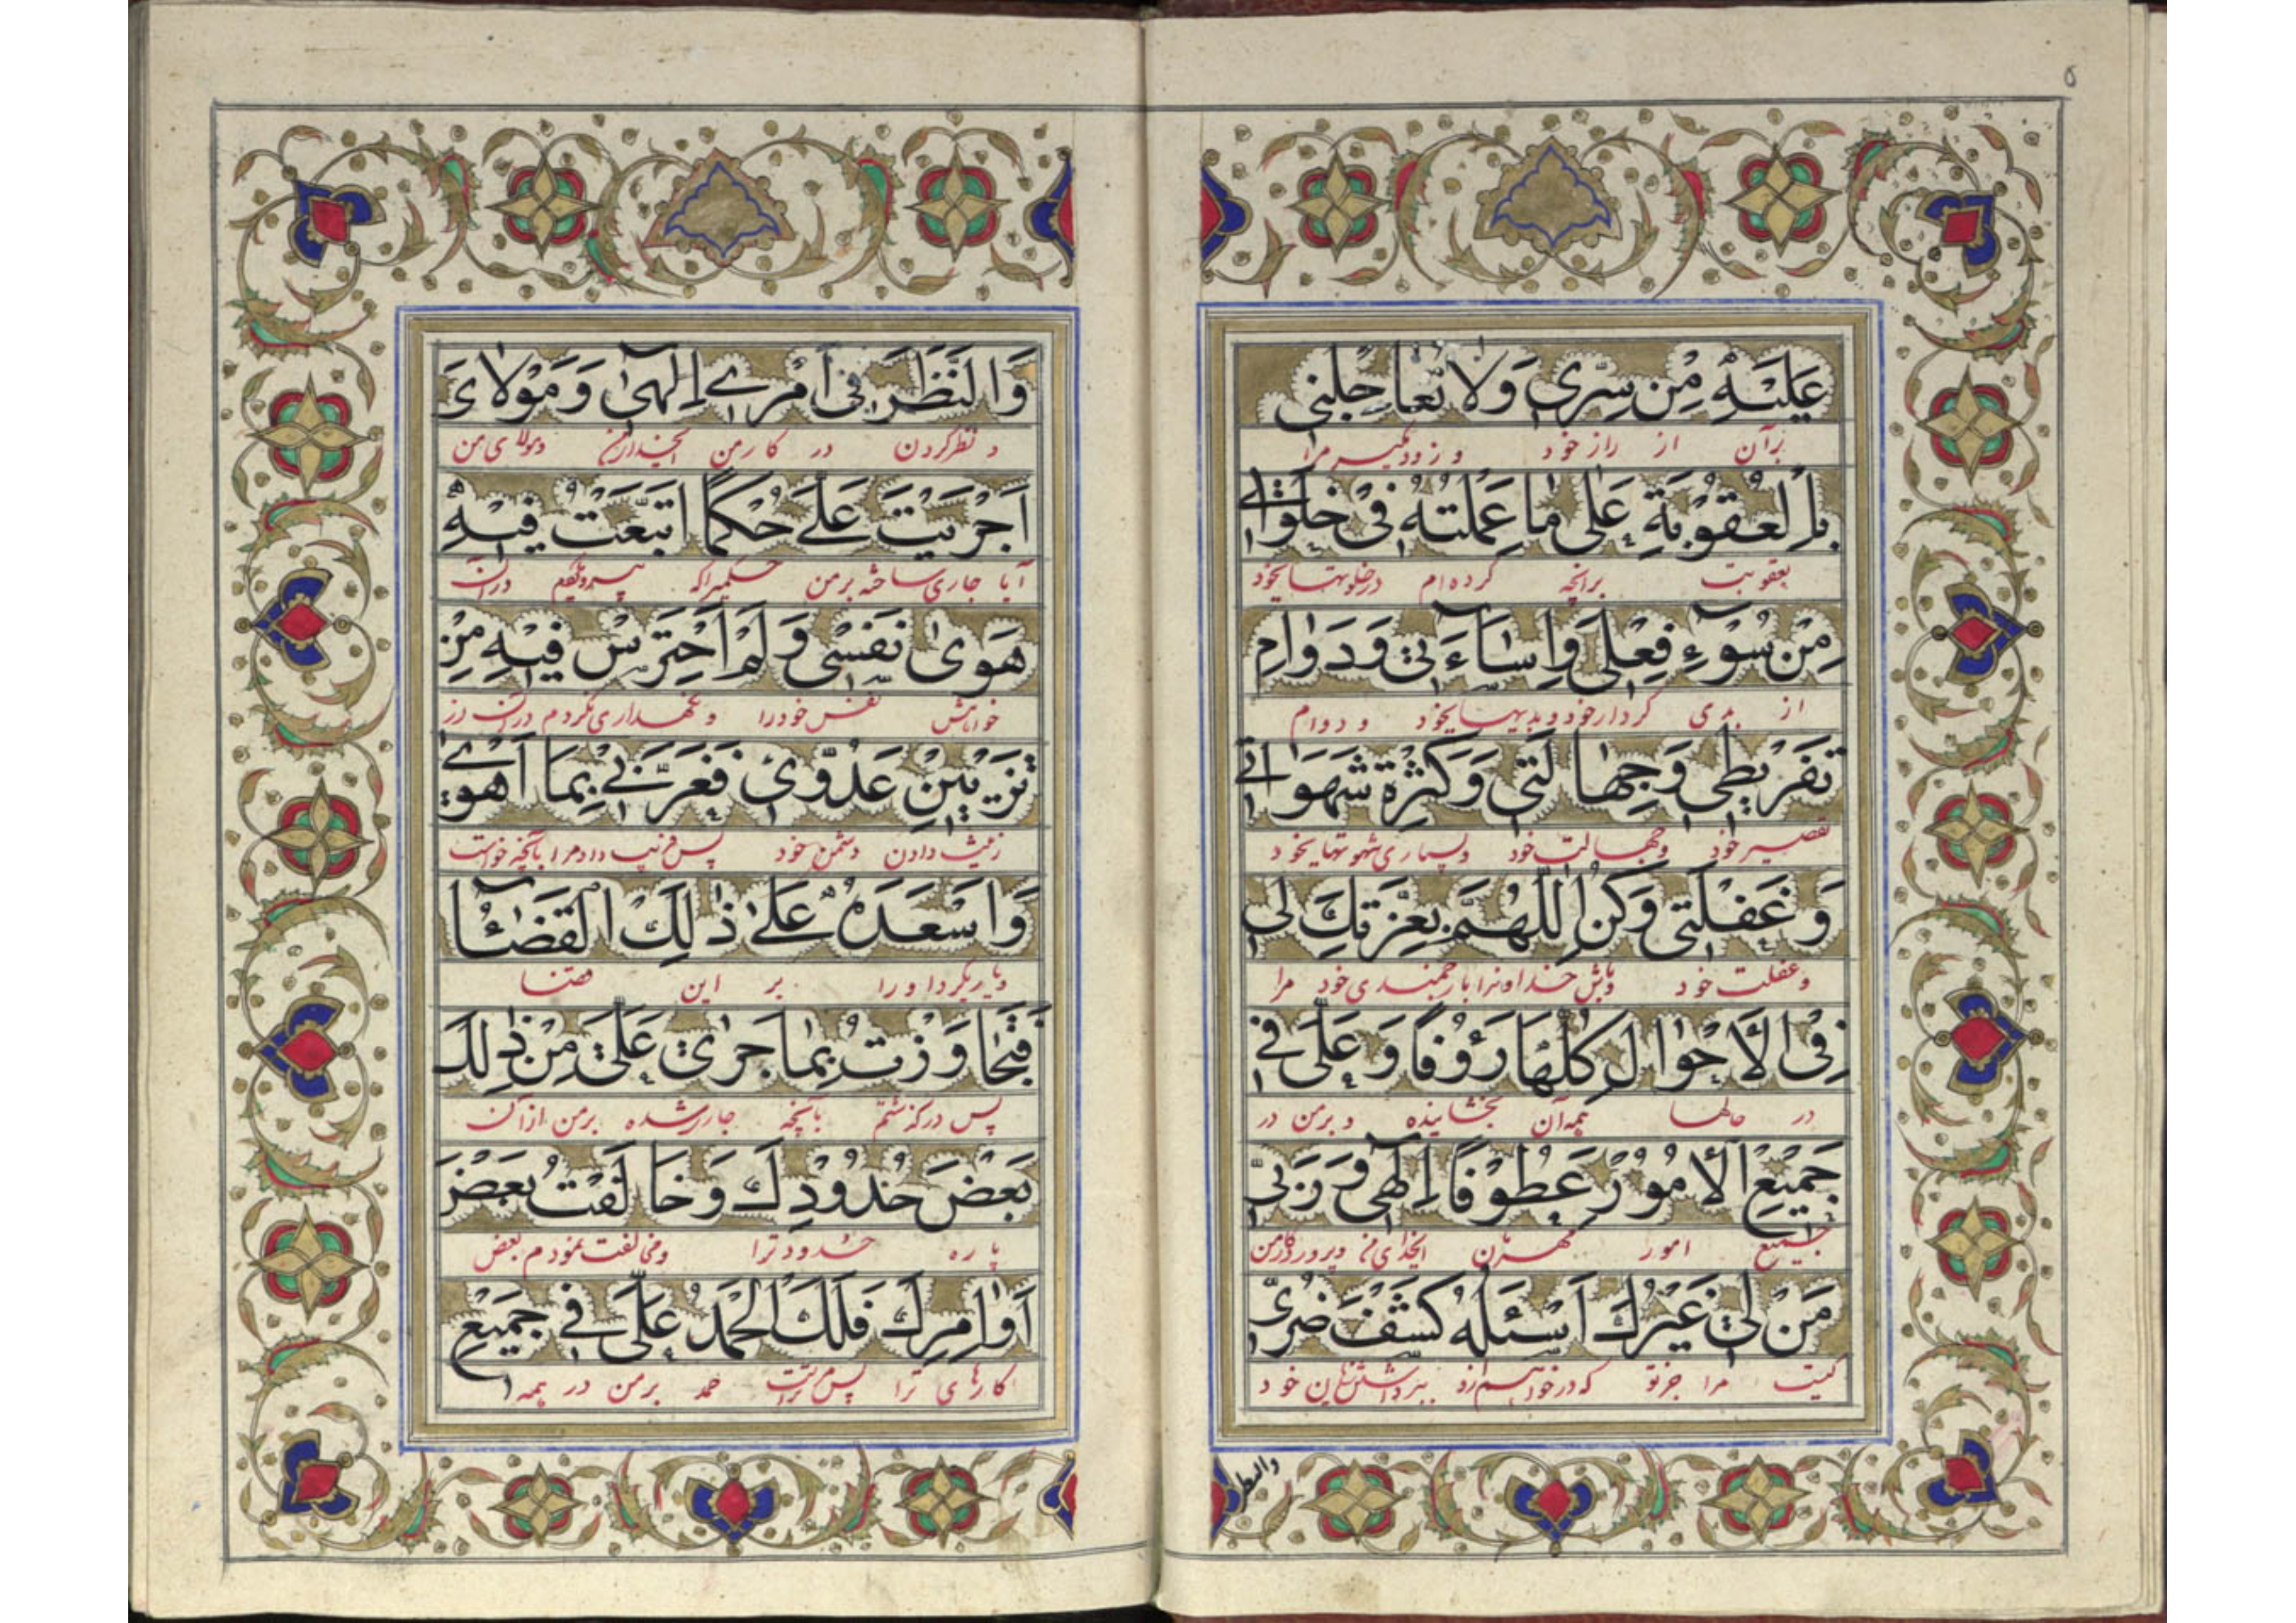 ۵
عَلَيْهِ مِنْ سِرّي وَلا تُعاجِلْني
بر آن از راز خود و زود مگیر مرا
بِالْعُقُوبَةِ عَلى ما عَمِلْتُهُ في خَلَواتي
بعقوبت برانچه کرده‌ام در خلوتهای خود
مِنْ سُوۤءِ فِعْلي وَاِساۤءَتي وَدَوامِ
از بدی کردار خود و بدیهای خود و دوام
تَفْريطي وَجِهالَتي وَكَثْرَةِ شَهَواتي
تقصیر خود وجهالت خود وبسیاری شهوتهای خود
وَغَفْلَتي وَكُنِ اللّهُمَّ بِعِزَّتِكَ لي
وغفلت خود وباش خداوندا بارجمندی خود مرا
فِي الْاَحْوالِ كُلِّها رَؤُفًا وَعَلَيَّ في
در حالها همه آن بخشاینده و بر من در
جَميعِ الْاُمُورِ عَطُوفًا اِلهي وَرَبّي
جمیع امور مهربان ایخدای من وپروردگار من
مَنْ لي غَيْرُكَ اَسْئَلُهُ كَشْفَ ضُرّي
کیست مرا جز تو که درخواهم ازو برداشتن زیان خود
والنظر
وَالنَّظَرَ في اَمْري اِلهي وَمَوْلايَ
و نظر کردن در کار من ایخدای من ومولای من
اَجْرَيْتَ عَلَيَّ حُكْمًا اتَّبَعْتُ فيهِ
آیا جاری ساختهٔ بر من حکمیرا که پیروی کردم در آن
هَوى نَفْسي وَلَمْ اَحْتَرِسْ فيهِ مِنْ
خواهش نفس خود را و نگهداری نکردم در آن از
تَزْيينِ عَدُوّي فَغَرَّني بِما اَهْوى
زینت دادن دشمن خود پس فریب داد مرا بآنچه خواست
وَاَسْعَدَهُ عَلى ذلِكَ الْقَضاۤءُ
و یاری کرد او را بر این قضا
فَتَجاوَزْتُ بِما جَرى عَلَيَّ مِنْ ذلِكَ
پس درگذشتم بآنچه جاری شده بر من از آن
بَعْضَ حُدُودِكَ وَخالَفْتُ بَعْضَ
پاره حدود ترا ومخالفت نمودم بعض
اَوامِرِكَ فَلَكَ الْحَمْدُ عَلَيَّ في جَميعِ
کارهای ترا پس تراست حمد بر من در همه